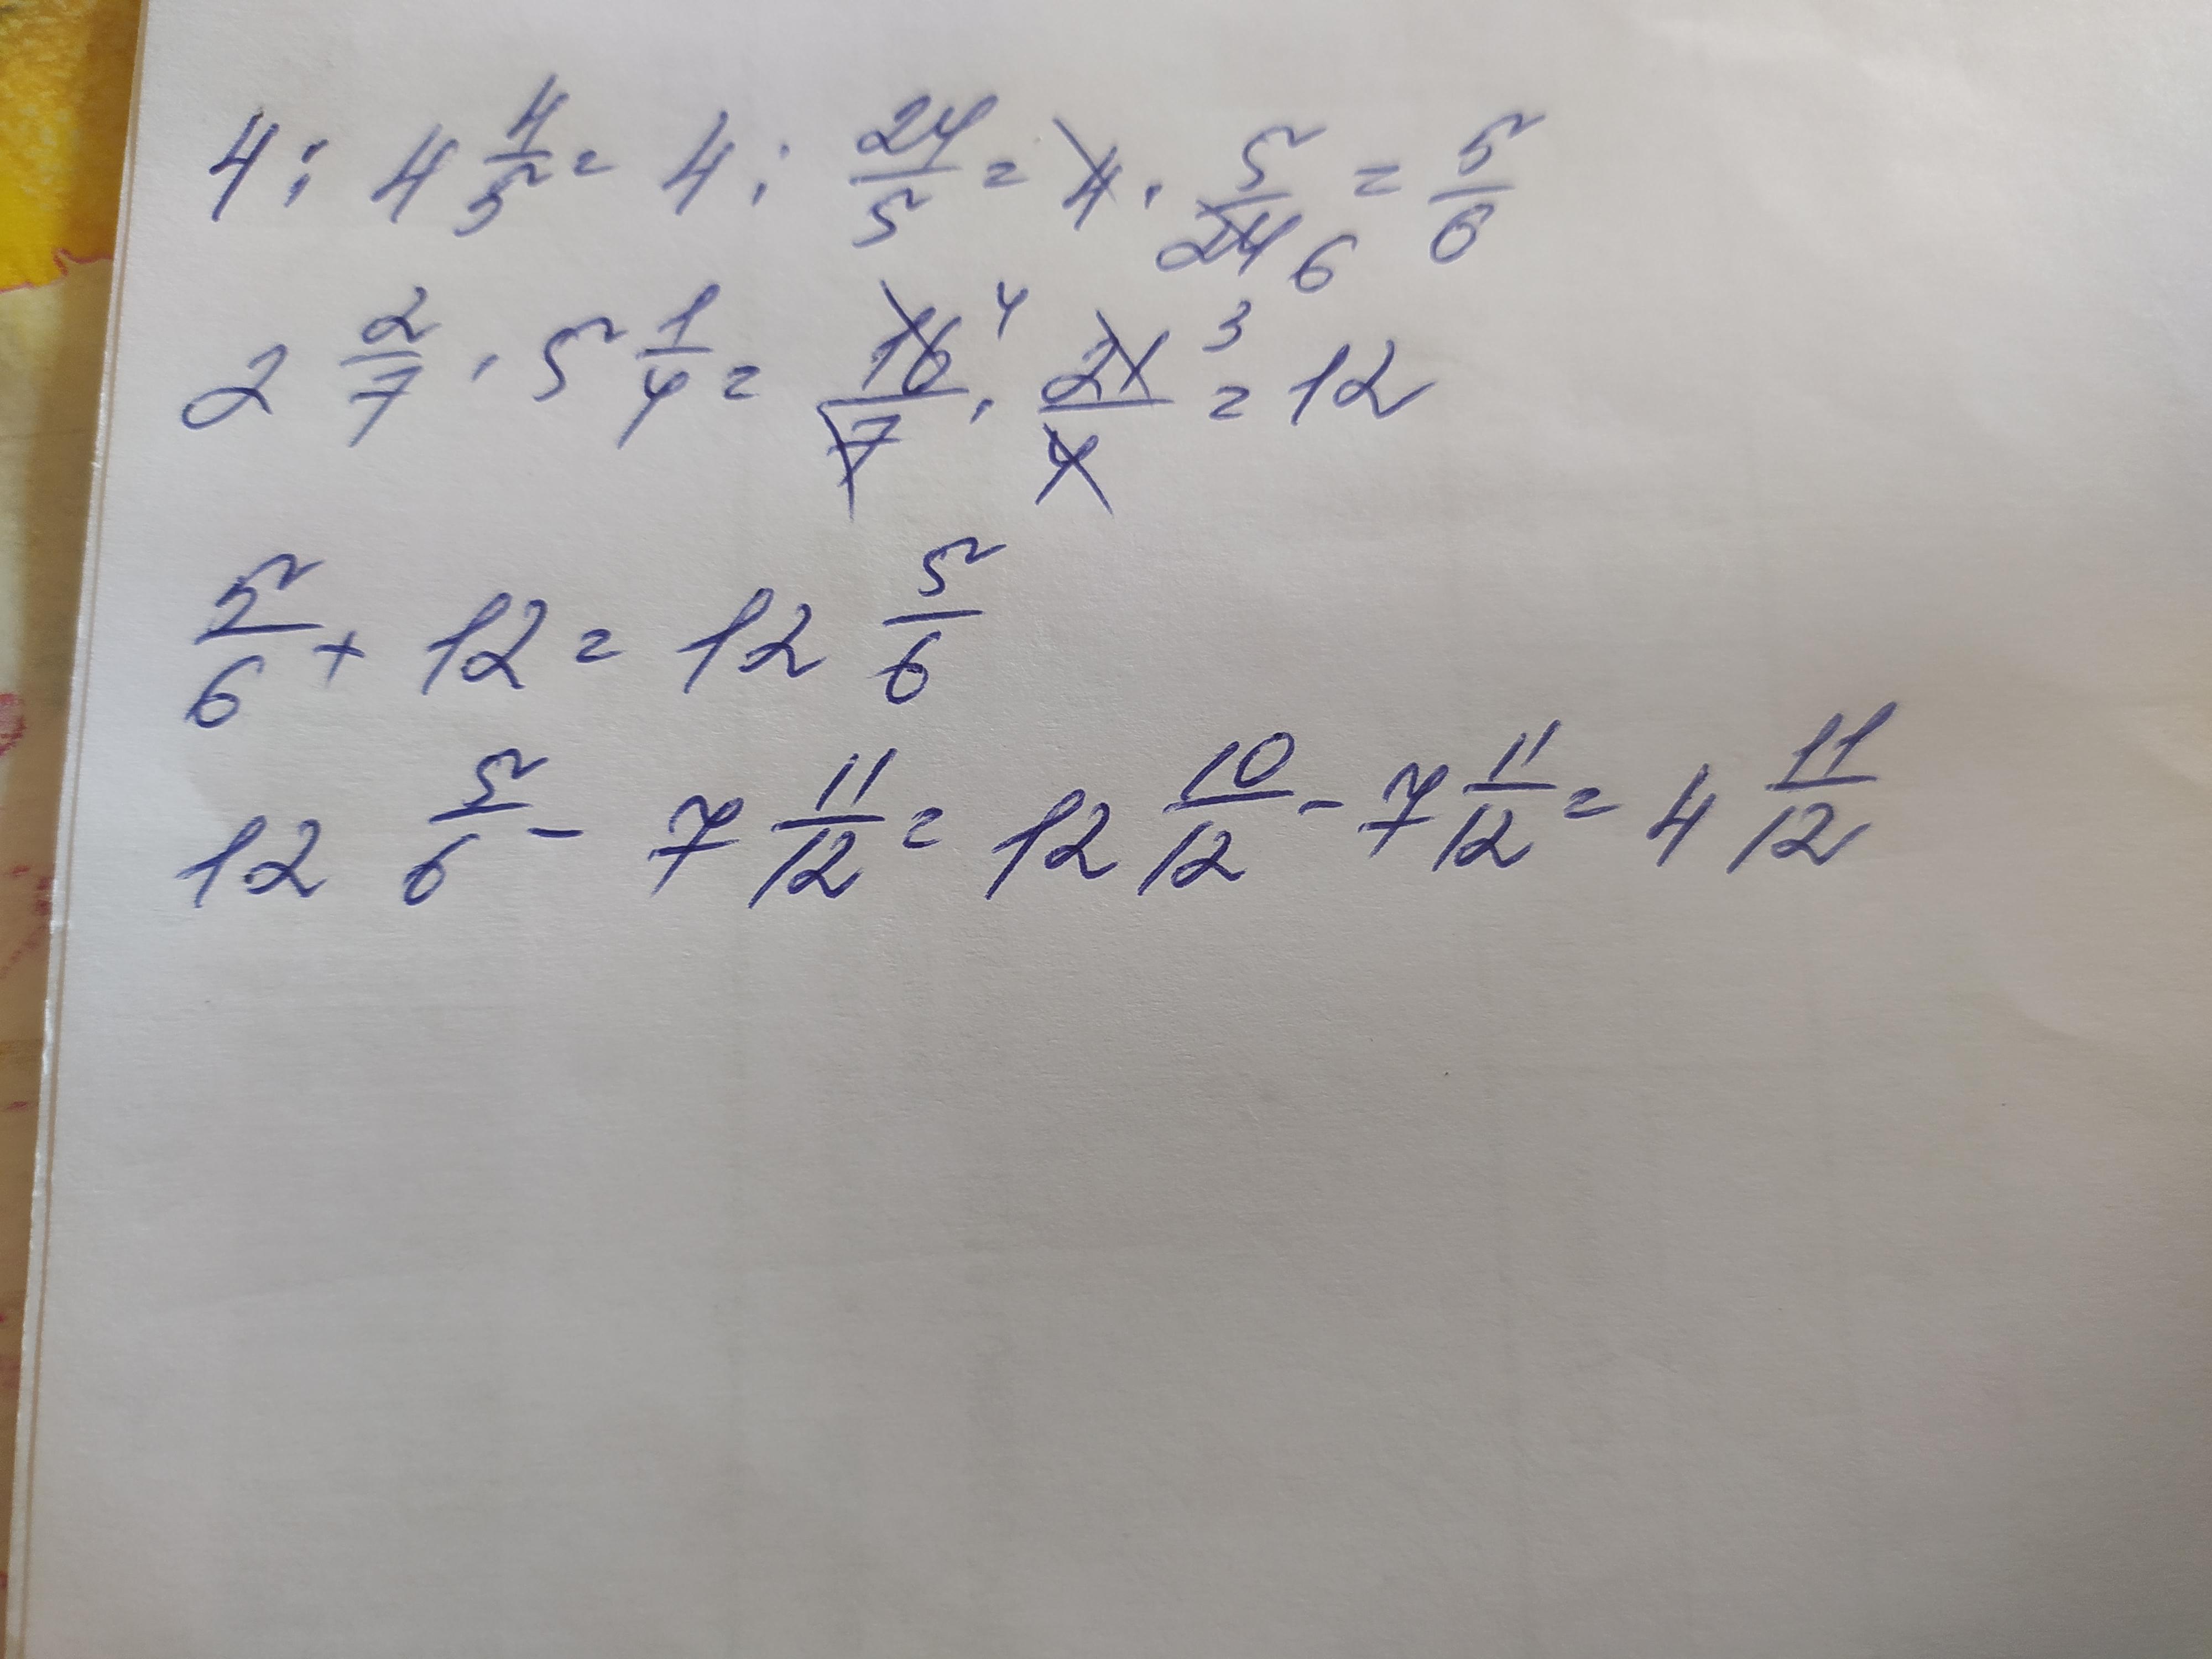 4 : 4 4/5 = 4 : 24/5 = 4 · 5/24 6 = 5/6
2 2/7 · 5 1/4 = 16/7 4 · 21/4 3 = 12
5/6 + 12 = 12 5/6
12 5/6 - 7 11/12 = 12 10/12 - 7 11/12 = 4 11/12